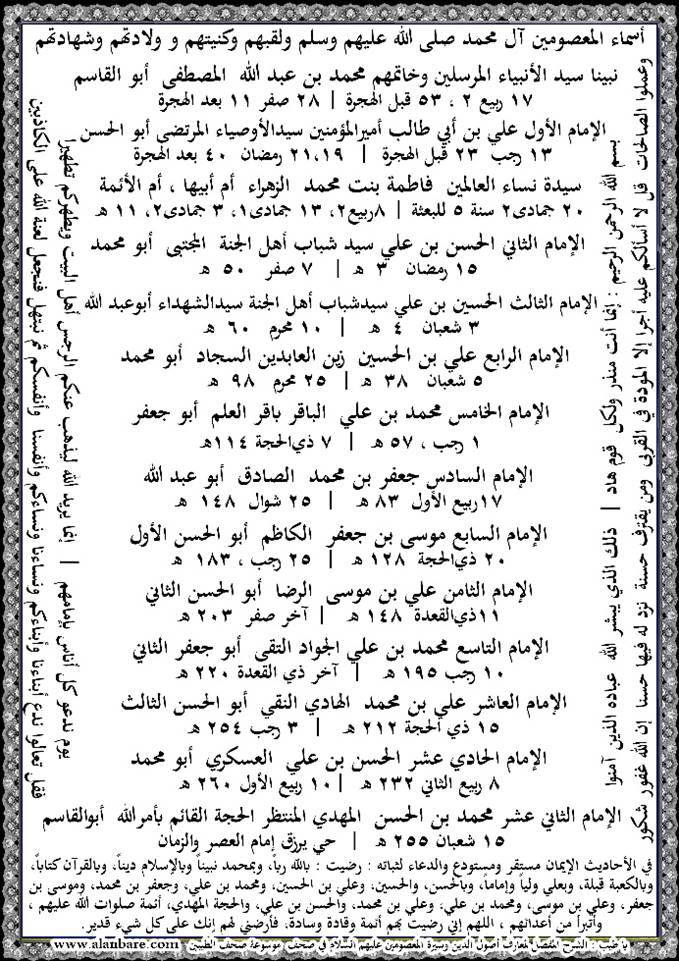 أسماء المعصومين آل محمد صلى الله عليهم وسلم ولقبهم وكنيتهم و ولادتهم وشهادتهم
نبينا سيد الأنبياء المرسلين وخاتمهم محمد بن عبد الله المصطفى أبو القاسم
١٧ ربيع ٢ ، ٥٣ قبل الهجرة | ٢٨ صفر ١١ بعد الهجرة
الإمام الأول علي بن أبي طالب أميرالمؤمنين سيدالأوصياء المرتضى أبو الحسن
١٣ رجب ٢٣ قبل الهجرة | ٢١،١٩ رمضان ٤٠ بعد الهجرة
سيدة نساء العالمين فاطمة بنت محمد الزهراء أم أبيها ، أم الأئمة
٢٠ جمادى٢ سنة ٥ للبعثة | ٨ربيع٢، ١٣ جمادى١، ٣ جمادى٢، ١١ هـ
الإمام الثاني الحسن بن علي سيد شباب أهل الجنة المجتبى أبو محمد
١٥ رمضان ٣ هـ | ٧ صفر ٥٠ هـ
الإمام الثالث الحسين بن علي سيدشباب أهل الجنة سيدالشهداء أبوعبد الله
٣ شعبان ٤ هـ | ١٠ محرم ٦٠ هـ
الإمام الرابع علي بن الحسين زين العابدين السجاد أبو محمد
٥ شعبان ٣٨ هـ | ٢٥ محرم ٩٨ هـ
الإمام الخامس محمد بن علي الباقر باقر العلم أبو جعفر
١ رجب ، ٥٧ هـ | ٧ ذي‌الحجة ١١٤هـ
الإمام السادس جعفر بن محمد الصادق أبو عبد الله
١٧ربيع الأول ٨٣ هـ | ٢٥ شوال ١٤٨ هـ
الإمام السابع موسى بن جعفر الكاظم أبو الحسن الأول
٢٠ ذي‌الحجة ١٢٨ هـ | ٢٥ رجب ، ١٨٣ هـ
الإمام الثامن علي بن موسى الرضا أبو الحسن الثاني
١١ذي‌القعدة ١٤٨ هـ | آخر صفر ٢٠٣ هـ
الإمام التاسع محمد بن علي الجواد التقي أبو جعفر الثاني
١٠ رجب ١٩٥ هـ | آخر ذي القعدة ٢٢٠ هـ
الإمام العاشر علي بن محمد الهادي النقي أبو الحسن الثالث
١٥ ذي الحجة ٢١٢ هـ | ٣ رجب ٢٥٤ هـ
الإمام الحادي عشر الحسن بن علي العسكري أبو محمد
٨ ربيع الثاني ٢٣٢ هـ | ١٠ ربيع الأول ٢٦٠ هـ
الإمام الثاني عشر محمد بن الحسن المهدي المنتظر الحجة القائم بأمرالله أبوالقاسم
١٥ شعبان ٢٥٥ هـ | حي يرزق إمام العصر والزمان
في الأحاديث الإيمان مستقر ومستودع والدعاء لثباته : رضيت : بالله رباً، وبمحمد نبيناً وبالإسلام ديناً، وبالقرآن كتاباً،
وبالكعبة قبلة، وبعلي ولياً وإماماً، وبالحسن، والحسين، وعلي بن الحسين، ومحمد بن علي، وجعفر بن محمد، وموسى بن
جعفر، وعلي بن موسى، ومحمد بن علي، وعلي بن محمد، والحسن بن علي، والحجة المهدي، أئمة صلوات الله عليهم ،
وأتبرأ من أعدائهم ، اللهم إني رضيت بهم أئمة وقادة وسادة، فأرضني لهم إنك على كل شيء قدير.
يا طيب : الشرح المفصل لمعارف أصول الدين وسيرة المعصومين عليهم السلام في صحف موسوعة صحف الطيبين www.alanbare.com
بسم الله الرحمن الرحيم : إنما أنت منذر ولكل قوم هاد | ذلك الذي يبشر الله عباده الذين آمنوا
وعملوا الصالحات قل لا أسألكم عليه أجرا إلا المودة في القربى ومن يقترف حسنة نزد له فيها حسنا إن الله غفور شكور
يوم ندعو كل أناس بإمامهم | إنما يريد الله ليذهب عنكم الرجس أهل البيت ويطهركم تطهيرا
فقل تعالوا ندع أبناءنا وأبناءكم ونساءنا ونساءكم وأنفسنا وأنفسكم ثم نبتهل فنجعل لعنة الله على الكاذبين